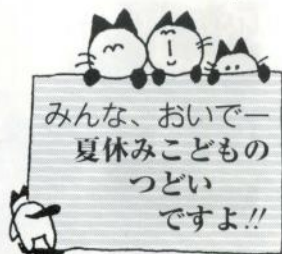 みんな、おいでー
夏休みこどもの
つどい
ですよ!!